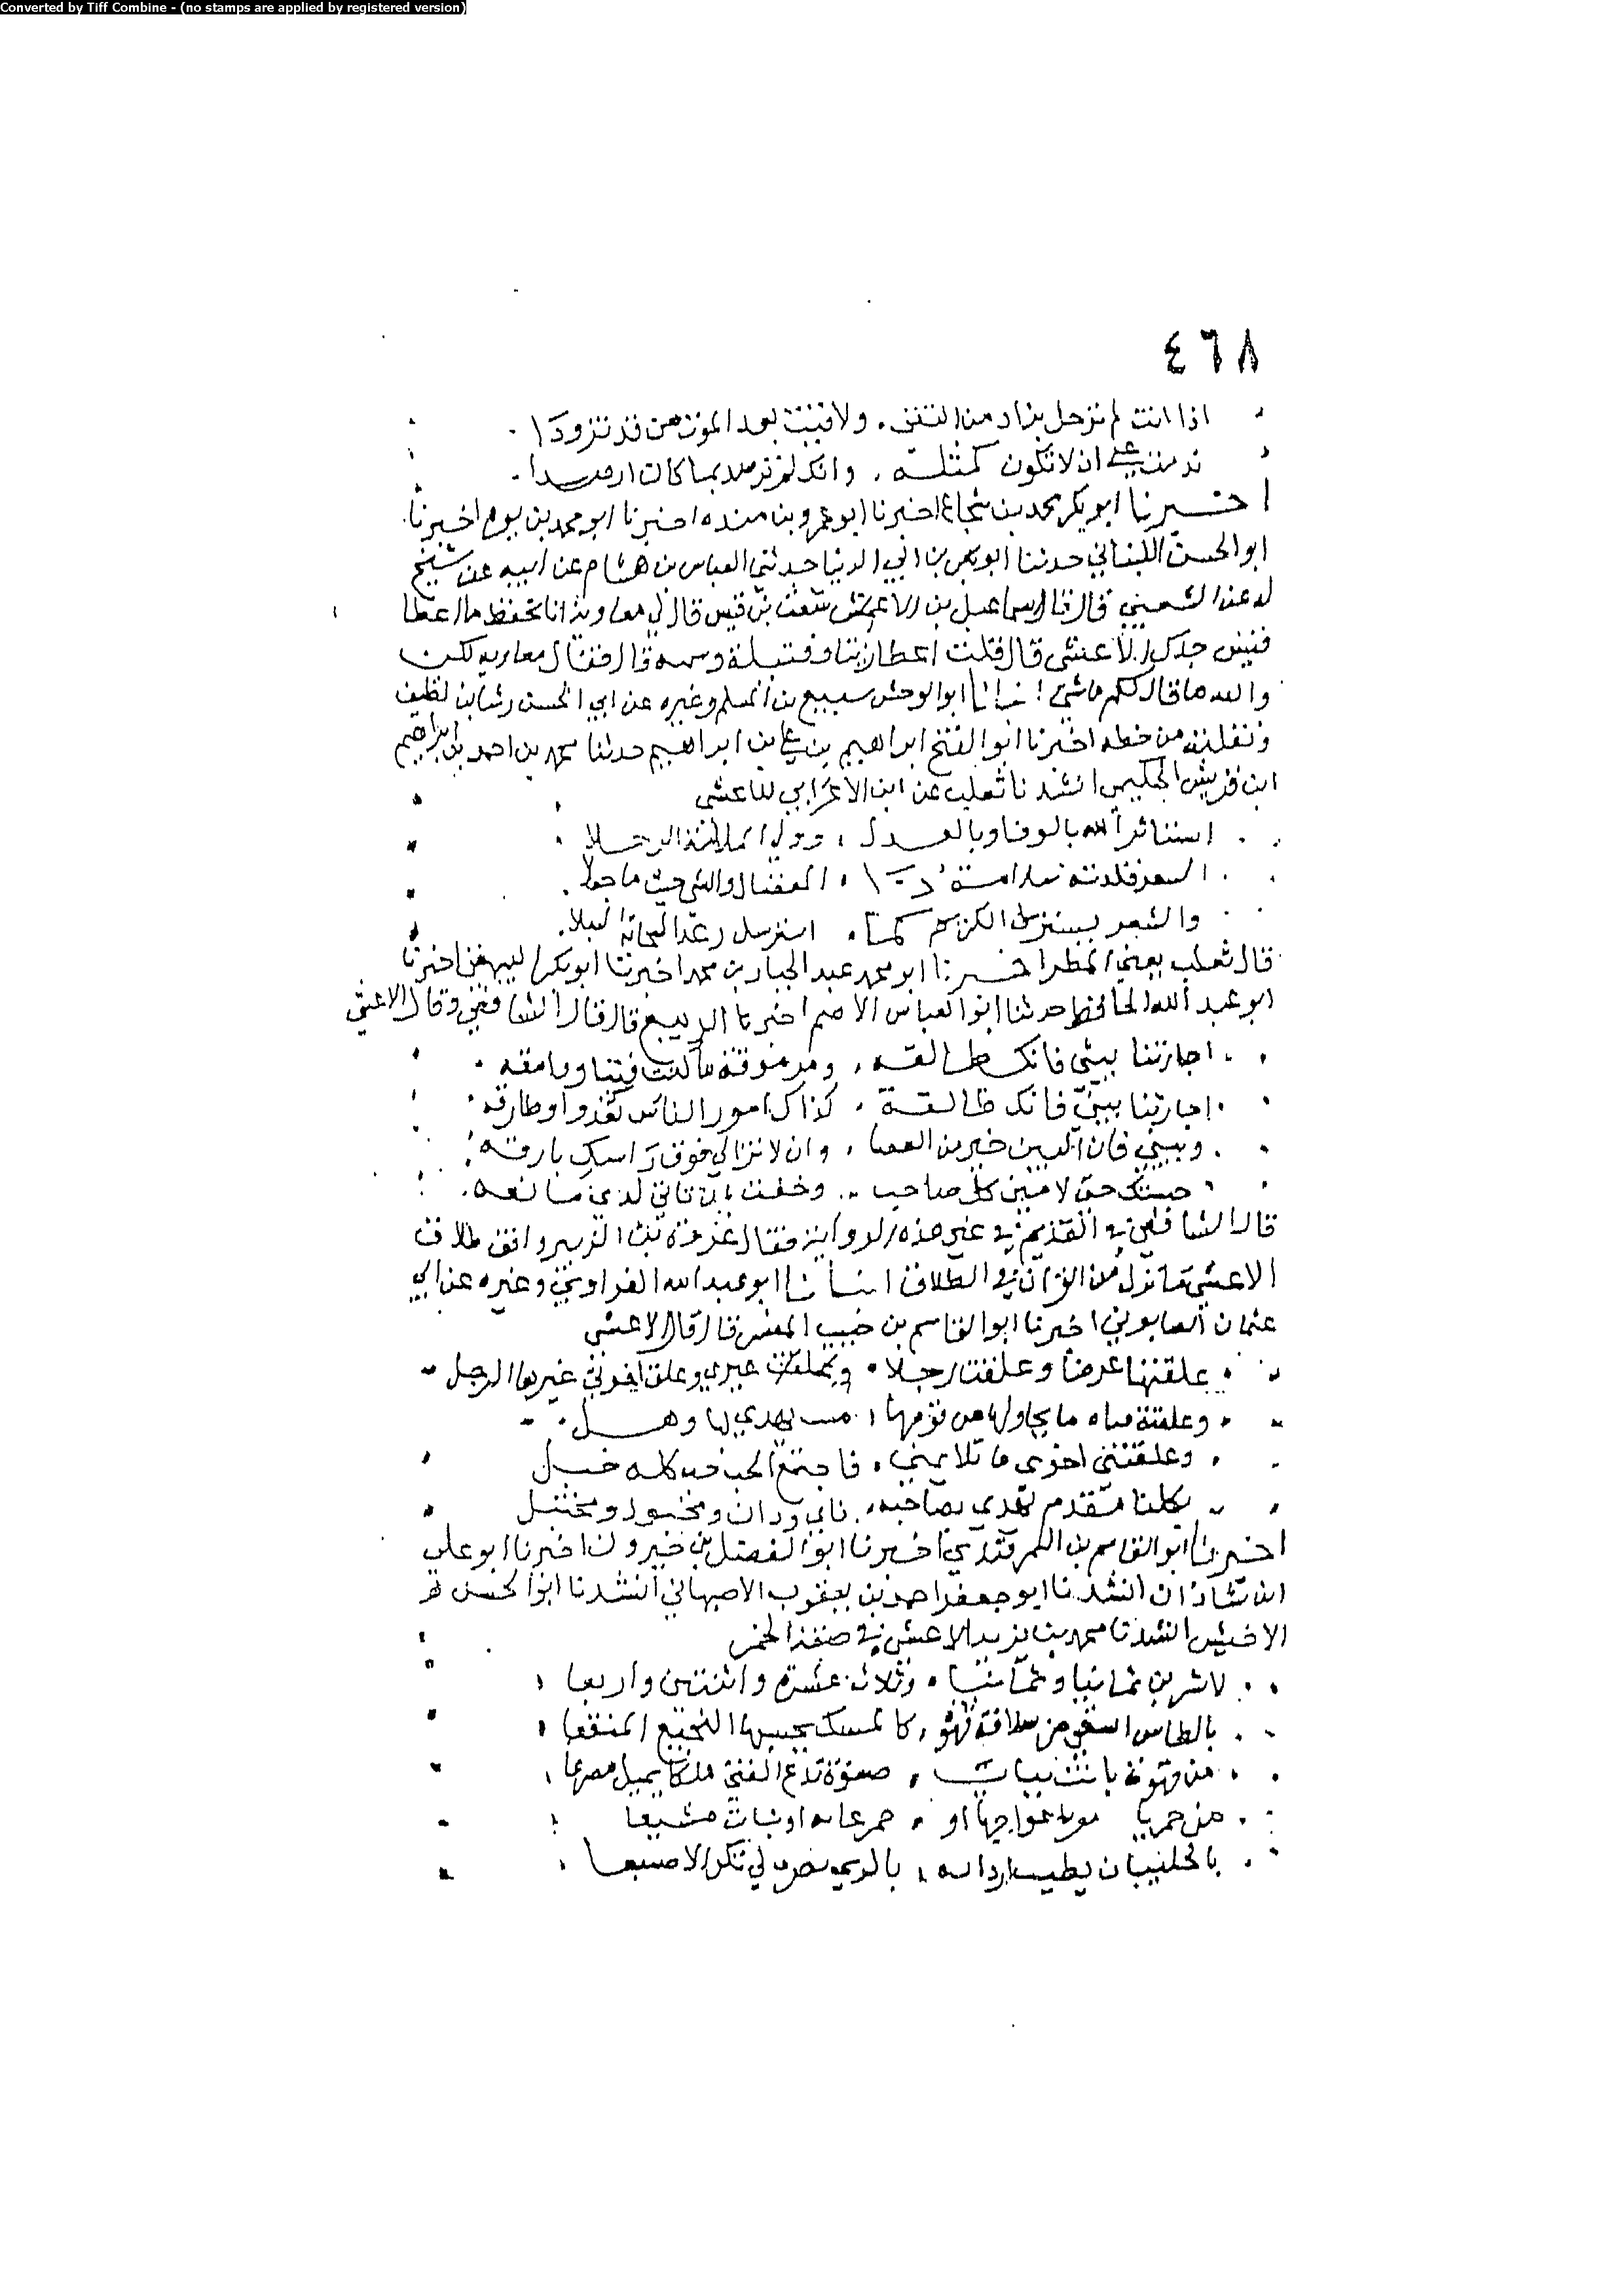 Converted by Tiff Combine - (no stamps are applied by registered version)
٤٦٨
اذا انت لم ترحل بزاد من التقى ولاقيت بعد الموت من قد تزودا
ندمت على ان لا تكون كمثله وانك لم ترصد بما كان ارصدا
اخبرنا ابو بكر محمد بن شجاع اخبرنا ابو عمرو بن منده اخبرنا ابو محمد بن يوه اخبرنا
ابو الحسن اللبناني حدثنا ابو بكر بن ابي الدنيا حدثني العباس بن هشام عن ابيه عن شيخ
له عن الشعبي قال قال اسماعيل بن الاشعث بن قيس قال لي معاوية انا تحفظ ما اعطا
قيس جدك الاعشى قال قلت اعطاه قال فقال معاوية لكن
والله ما قال لكم انبانا ابو الوحش سبيع بن المسلم وغيره عن ابي الحسن رشا بن نظيف
ونقلته من خطه اخبرنا ابو الفتح ابراهيم بن علي بن ابراهيم حدثنا محمد بن احمد بن ابراهيم
ابن قريش الحكيمي انشدنا ثعلب عن ابن الاعرابي للاعشى
استاثر الله بالوفا وبالعدل وولى الملامة الرجلا
الشعر قلدته سلامة ذا والشي حيث ما جعلا
والشعر يستنزل الكريم كما استنزل رعد السحابة السبلا
قال ثعلب يعني المطر اخبرنا ابو محمد عبد الجبار بن محمد اخبرنا ابو بكر البيهقي اخبرنا
ابو عبد الله الحافظ حدثنا ابو العباس الاصم اخبرنا الربيع قال قال الشافعي وقال الاعشى
اجارتنا بيني فانك طالقه ومرموقة ما كنت فينا ووامقه
اجارتنا بيني فانك طالقة كذاك امور الناس تغدوا وطارقه
وبيني فان البين خير من العصا وان لا تزالي فوق راسك بارقه
حبستك حتى لامني كل صاحب وخفت بان تاتي لدي ببائقه
قال الشافعي في القديم في غير هذه الرواية فقال عروة بن الزبير وافق طلاق
الاعشى ما نزل من القران في الطلاق انبانا ابو عبد الله الفراوي وغيره عن ابي
عثمان الصابوني اخبرنا ابو القاسم بن حبيب المفسر قال قال الاعشى
علقتها عرضا وعلقت رجلا غيري وعلق اخرى غيرها الرجل
وعلقته فتاه ما يحاولها من قومها ميت يهذي بها وهل
وعلقتني اخرى ما تلايمني فاجتمع الحب حب كله خبل
فكلنا مغرم يهذي بصاحبه ناي ودان ومخبول ومختبل
اخبرنا ابو القاسم بن السمرقندي اخبرنا ابو الفضل بن خيرون اخبرنا ابو علي
ابن شاذان انشدنا ابو جعفر احمد بن يعقوب الاصبهاني انشدنا ابو الحسن
الاخفش انشدنا محمد بن يزيد للاعشى في صفة الخمر
لاشربن ثمانيا وثمانيا وثلاث عشرة واثنتين واربعا
بالطاس اسقى من سلافة قهوة كالمسك
من قهوة باتت صفوة تدع الفتى ملكا يميل مصرعا
من خمر او خمر عانه او نبات مشبعا
بالجلسان يطيب اردانه بالون يضرب لي يكر الاصبعا